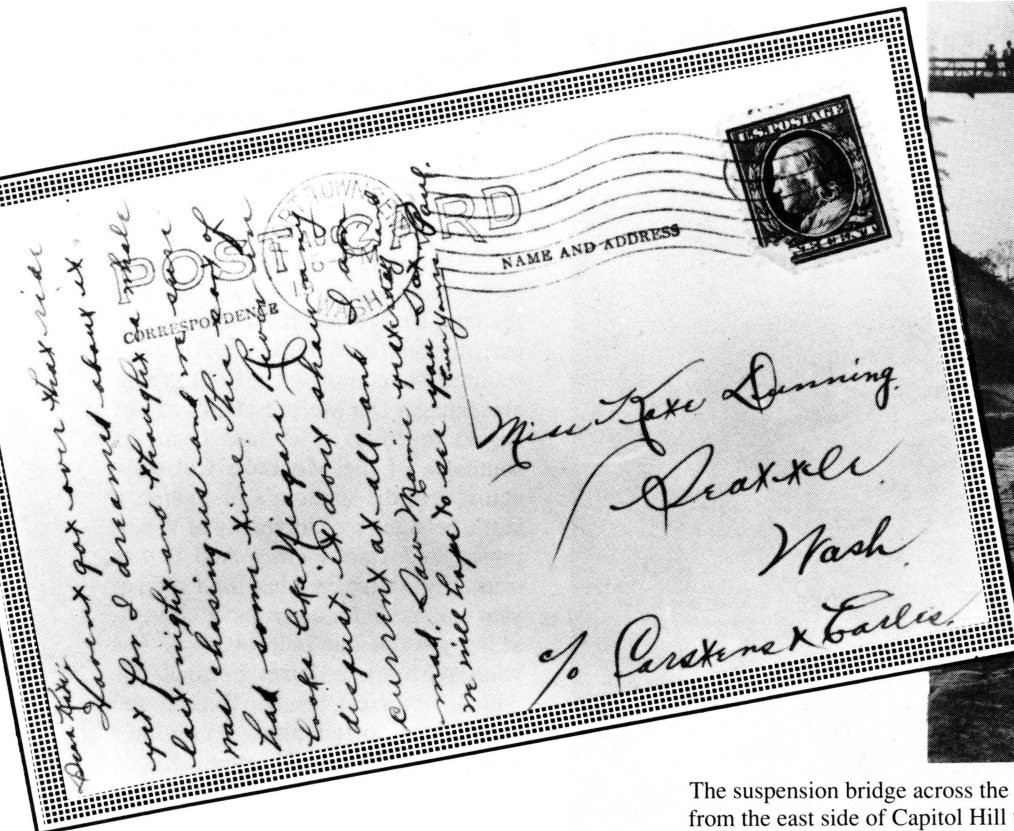 POST CARD
TOWNSEND
WASH
CORRESPONDENCE
NAME AND ADDRESS
U.S. POSTAGE
CENT
Dear Kate;
Havent got over that ride
yet Len I dreamed about it
last night and thought a whale
was chasing use and we sure
had some time This any of
looks like Niagara River
disgust it dont show any
current at all and I am so
mad. Saw Mame yesterday
we will hope to see you Sat
Miss Kate Dunning.
Seattle.
Wash.
c/o Carstens & Earles.
The suspension bridge across the
from the east side of Capitol Hill